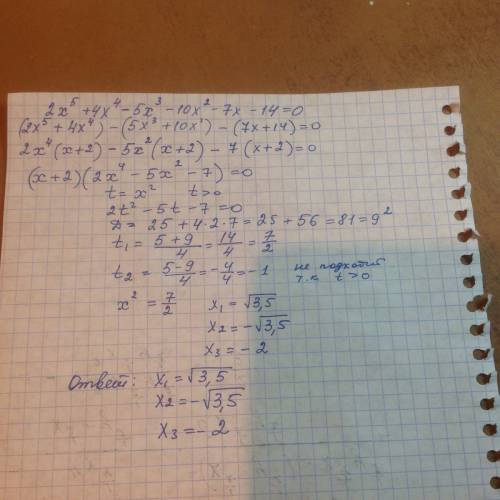 2x⁵ + 4x⁴ - 5x³ - 10x² - 7x - 14 = 0
(2x⁵ + 4x⁴) - (5x³ + 10x²) - (7x + 14) = 0
2x⁴(x+2) - 5x²(x+2) - 7(x+2) = 0
(x+2)(2x⁴ - 5x² - 7) = 0
t = x² t > 0
2t² - 5t - 7 = 0
D = 25 + 4·2·7 = 25 + 56 = 81 = 9²
t₁ = (5+9)/4 = 14/4 = 7/2
t₂ = (5-9)/4 = -4/4 = -1 не подходит
т.к t > 0
x² = 7/2 x₁ = √3,5
x₂ = -√3,5
x₃ = -2
Ответ: x₁ = √3,5
x₂ = -√3,5
x₃ = -2